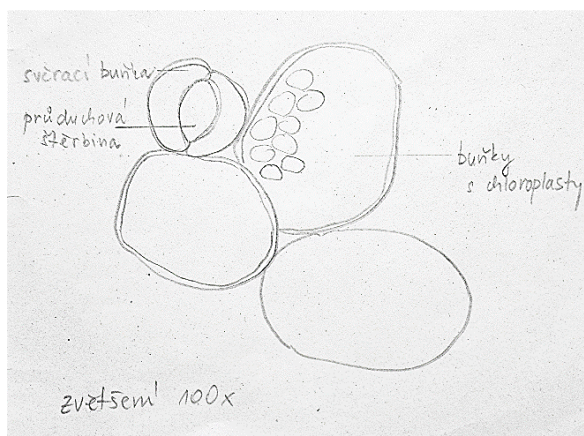 svěrací buňka
průduchová
štěrbina
buňky
s chloroplasty
zvětšení 100x